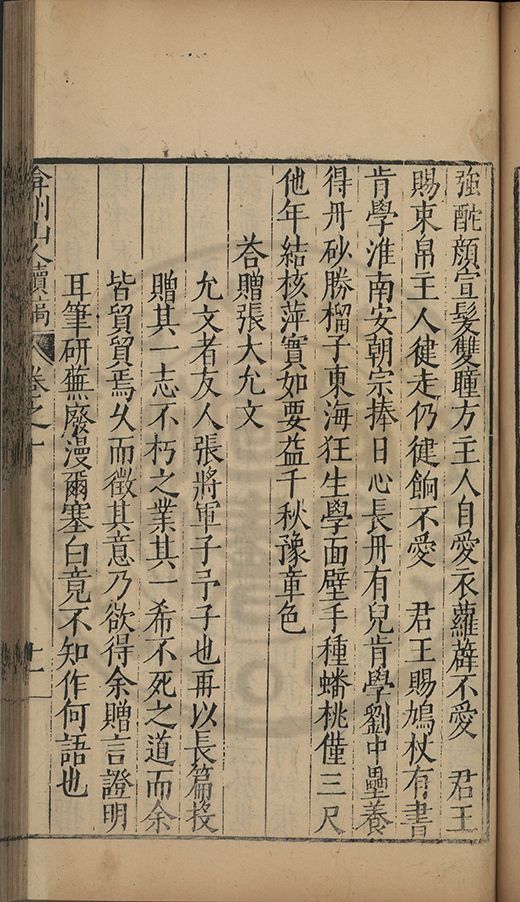 強酡顔宣髮雙瞳方主人自愛衣蘿薜不愛　君王
賜束帛主人徤走仍徤餉不愛　君王賜鳩杖有書
肯學淮南安朝宗捧日心長丹有兒肯學劉中壘養
得丹砂勝榴子東海狂生學面壁手種蟠桃僅三尺
他年結核萍實如要益千秋豫章色
答贈張大允文
允文者友人張將軍子予子也再以長篇投
贈其一志不朽之業其一希不死之道而余
皆貿貿焉乆而徵其意乃欲得余贈言證明
耳筆研蕪廢漫爾塞白竟不知作何語也
弇州山人續稿　卷之十　十一